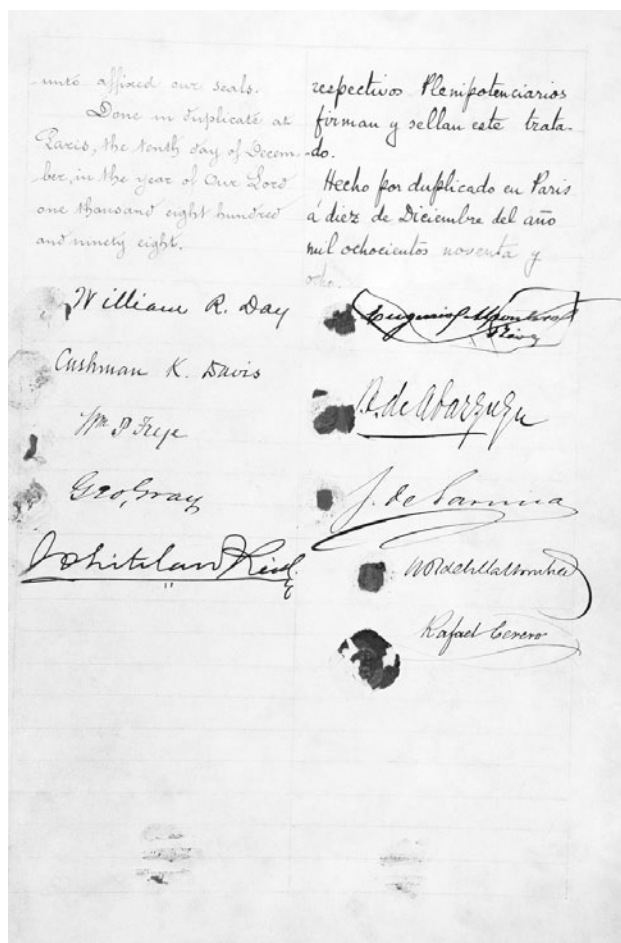 unto affixed our seals.
Done in duplicate at
Paris, the tenth day of Decem-
ber, in the year of Our Lord
one thousand eight hundred
and ninety eight.
William R. Day
Cushman K. Davis
Wm P Frye
Geo. Gray
Whitelaw Reid.
respectivos Plenipotenciarios
firman y sellan este trata-
do.
Hecho por duplicado en Paris
á diez de Diciembre del año
mil ochocientos noventa y
ocho.
Eugenio Montero
Rios
B. de Abarzuza
J. de Garnica
W R de Villa Urrutia
Rafael Cerero